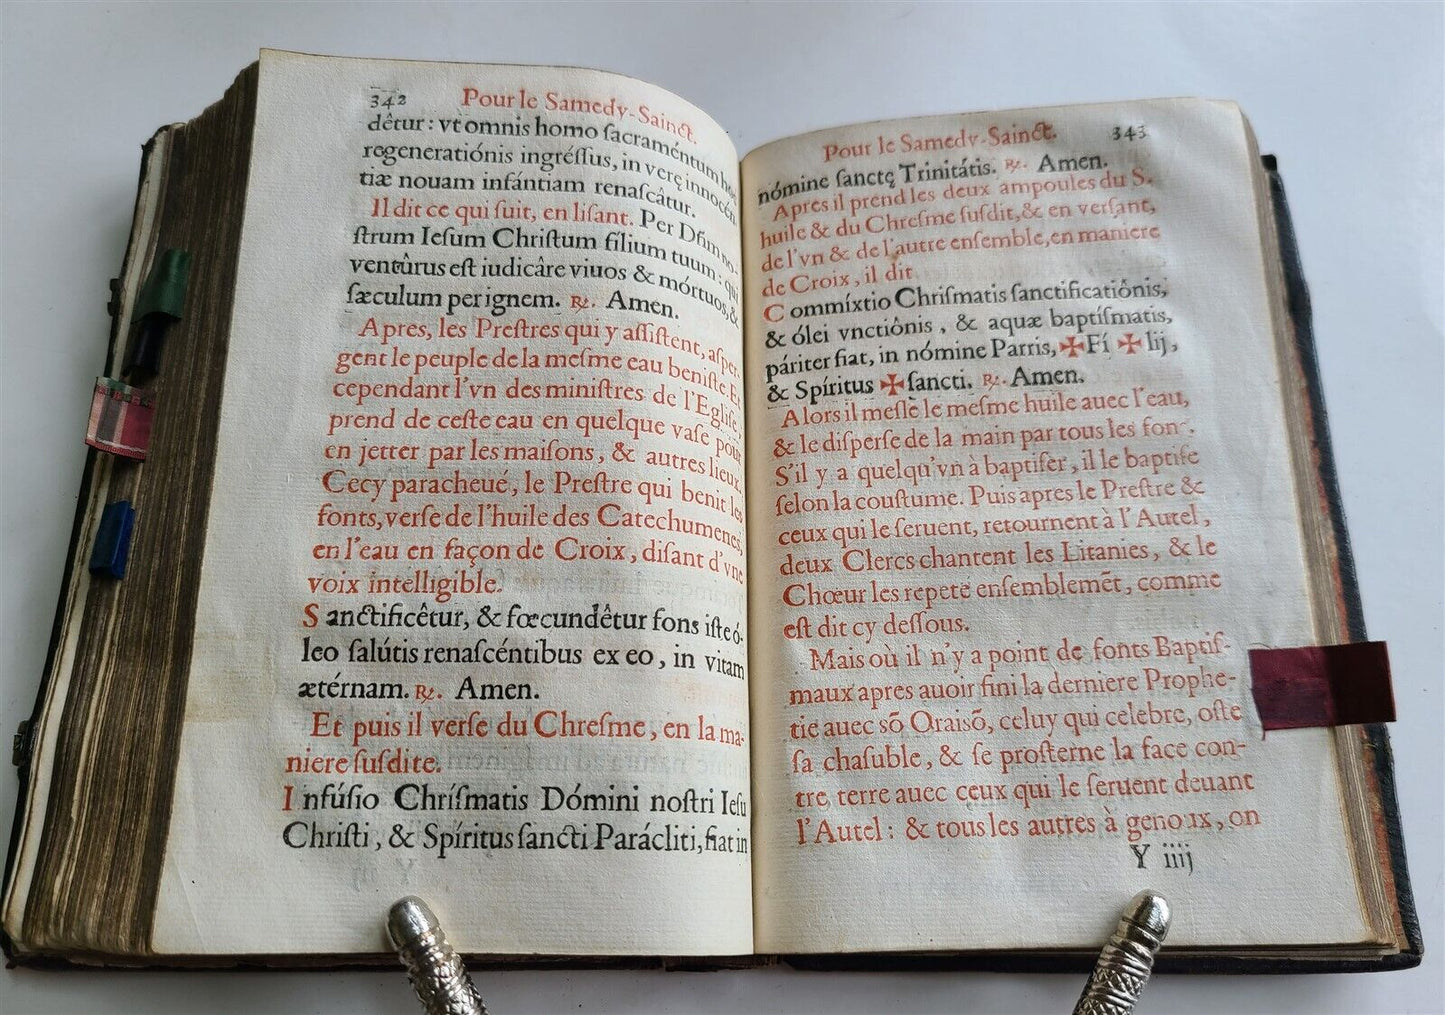 342 Pour le Samedy-Sainct.
dêtur: vt omnis homo ſacraméntum hoc
regeneratiónis ingréſſus, in verę innocén
tiæ nouam infántiam renaſcâtur.
Il dit ce qui ſuit, en liſant. Per Dñm no-
ſtrum Ieſum Chriſtum fílium tuum: qui
ventûrus eſt iudicâre viuos & mórtuos, &
ſæculum per ignem. ℟. Amen.
Apres, les Preſtres qui y aſſiſtent, aſper-
gent le peuple de la meſme eau beniſte. Et
cependant l'vn des miniſtres de l'Egliſe,
prend de ceſte eau en quelque vaſe pour
en jetter par les maiſons, & autres lieux.
Cecy paracheué, le Preſtre qui benit les
fonts, verſe de l'huile des Catechumenes,
en l'eau en façon de Croix, diſant d'vne
voix intelligible.
Sanctificêtur, & fœcundêtur fons iſte ó-
leo ſalútis renaſcéntibus ex eo, in vitam
ætérnam. ℟. Amen.
Et puis il verſe du Chreſme, en la ma-
niere ſuſdite.
Infúſio Chríſmatis Dómini noſtri Ieſu
Chriſti, & Spíritus ſancti Parácliti, fiat in
Pour le Samedy-Sainct. 343
nómine ſanctę Trinitátis. ℟. Amen.
Apres il prend les deux ampoules du S.
huile & du Chreſme ſuſdit, & en verſant,
de l'vn & de l'autre enſemble, en maniere
de Croix, il dit
Commíxtio Chriſmatis ſanctificatiónis,
& ólei vnctiônis, & aquæ baptíſmatis,
páriter fiat, in nómine Parris, ✠ Fí ✠ lij,
& Spíritus ✠ ſancti. ℟. Amen.
Alors il meſle le meſme huile auec l'eau,
& le diſperſe de la main par tous les fon
S'il y a quelqu'vn à baptiſer, il le baptiſe
ſelon la couſtume. Puis apres le Preſtre &
ceux qui le ſeruent, retournent à l'Autel,
deux Clercs chantent les Litanies, & le
Chœur les repete enſemblemẽt, comme
eſt dit cy deſſous.
Mais où il n'y a point de fonts Baptiſ-
maux apres auoir fini la derniere Prophe-
tie auec sõ Oraisõ, celuy qui celebre, oſte
ſa chaſuble, & ſe proſterne la face con-
tre terre auec ceux qui le ſeruent deuant
l'Autel: & tous les autres à genoux, on
Y iiij